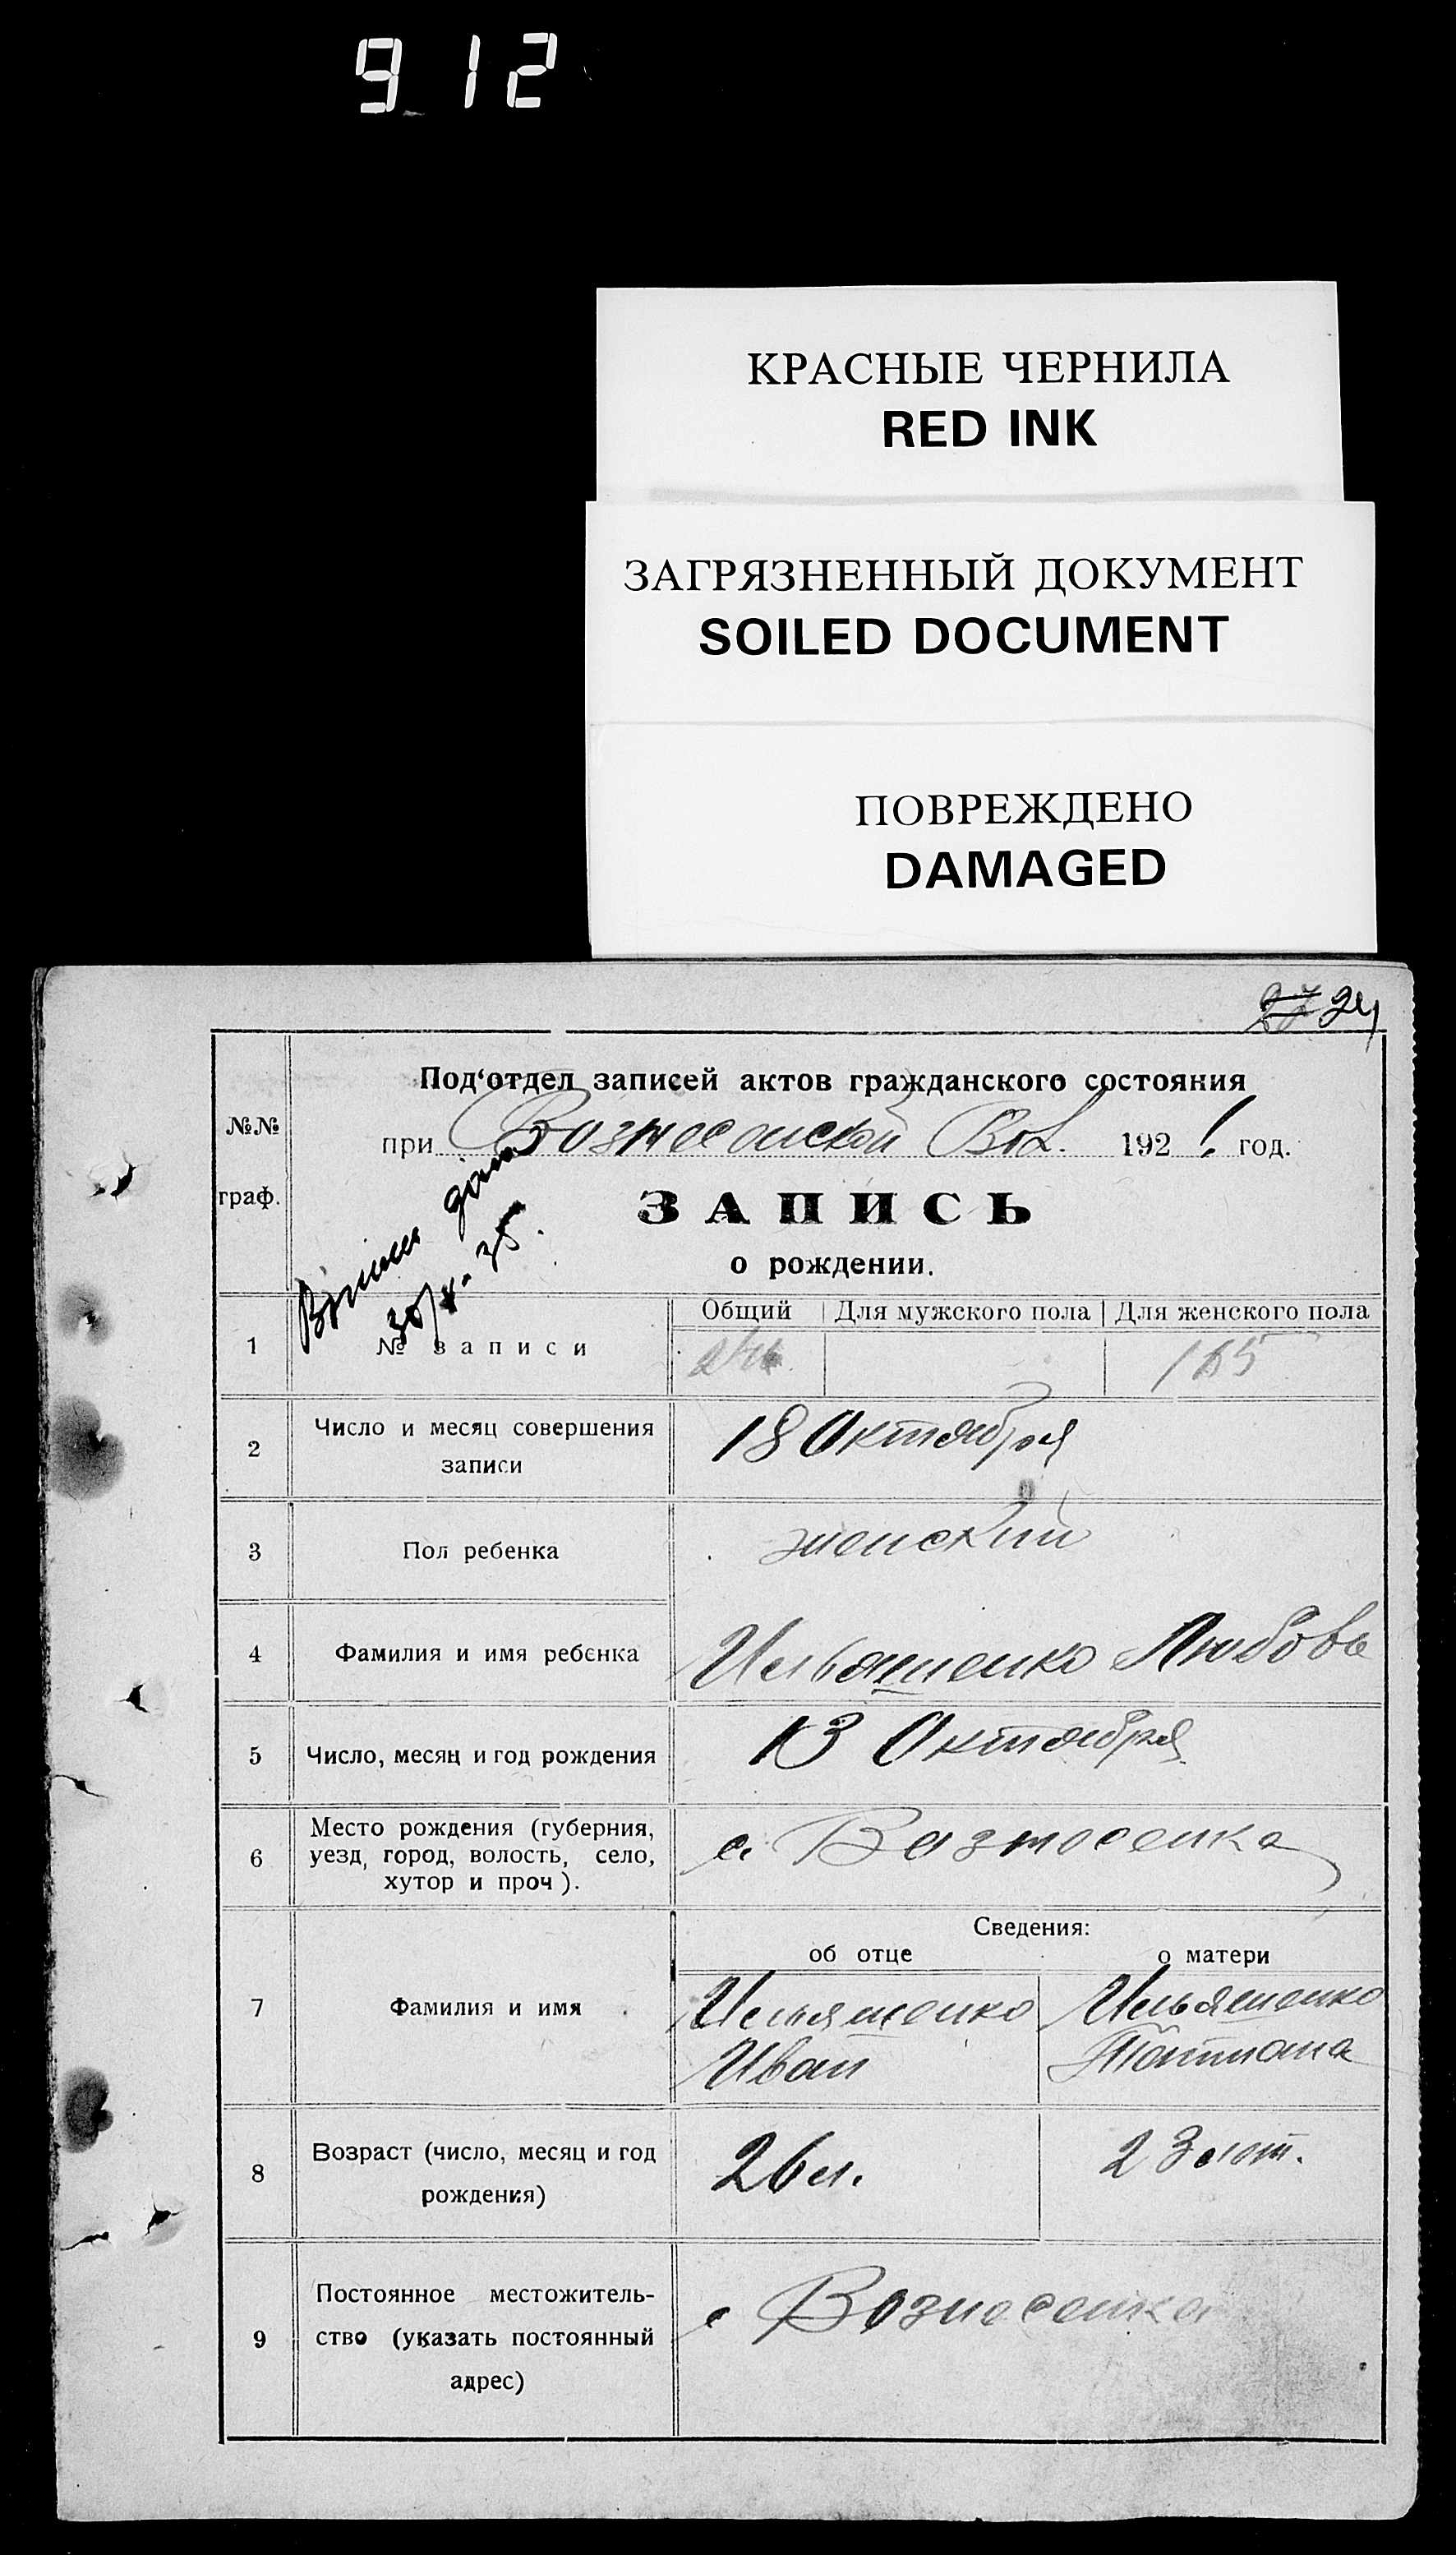 912
КРАСНЫЕ ЧЕРНИЛА
RED INK
ЗАГРЯЗНЕННЫЙ ДОКУМЕНТ
SOILED DOCUMENT
ПОВРЕЖДЕНО
DAMAGED
27 24
Под‘отдел записей актов гражданского состояния
№№
граф.
при Вознесенской Вол. 1921 год.
ЗАПИСЬ
о рождении.
30/X-35.
Общий Для мужского пола Для женского пола
1 № записи
2 Число и месяц совершения
записи
18 Октября
3 Пол ребенка женский
4 Фамилия и имя ребенка Ильяшенко Любовь
5 Число, месяц и год рождения 13 Октября
6 Место рождения (губерния,
уезд, город, волость, село,
хутор и проч).
с. Вознесенка
Сведения:
об отце о матери
7 Фамилия и имя
Ильяшенко Ильяшенко
Иван Татиана
8 Возраст (число, месяц и год
рождения)
26 л. 23 лет.
9 Постоянное местожитель-
ство (указать постоянный
адрес)
с Вознесенка